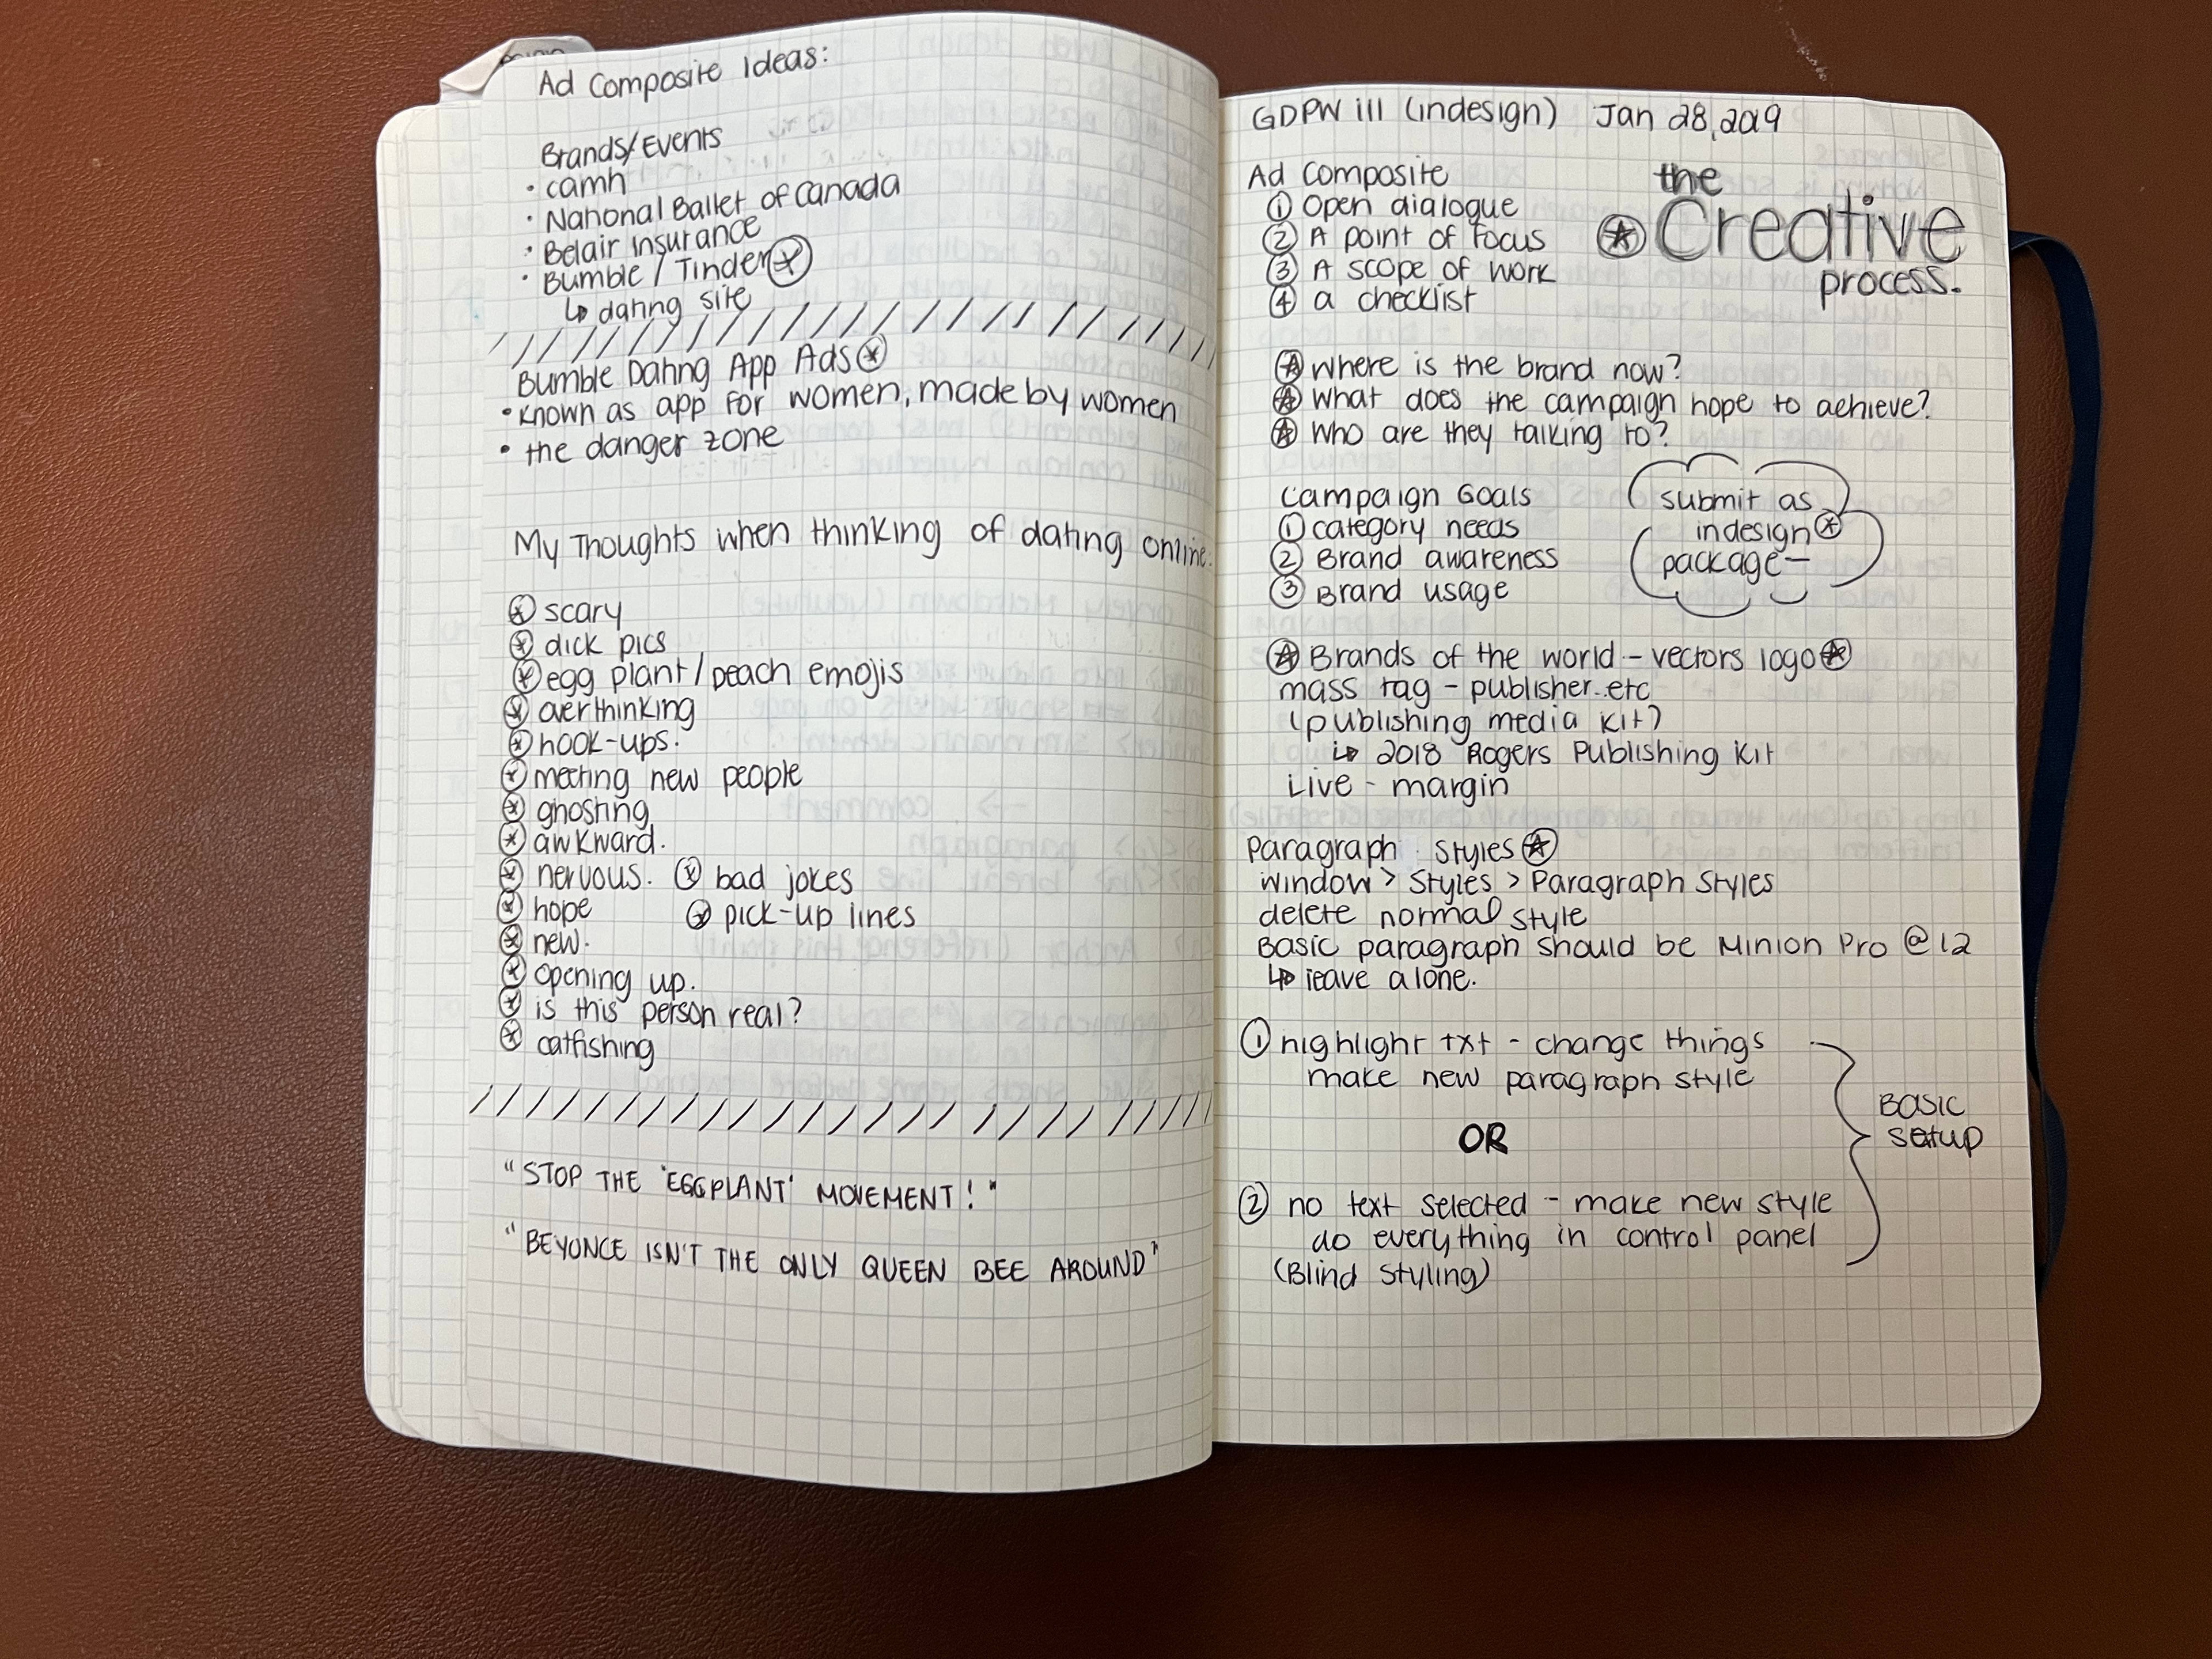 Ad Composite Ideas:
Brands/Events
• camh
• National Ballet of Canada
• Belair Insurance
• Bumble / Tinder
↳ dating site
Bumble Dating App Ads
• known as app for women, made by women
• the danger zone
My Thoughts when thinking of dating online:
scary
dick pics
egg plant / peach emojis
overthinking
hook-ups.
meeting new people
ghosting
awkward.
nervous. bad jokes
hope pick-up lines
new.
opening up.
is this person real?
catfishing
"STOP THE 'EGGPLANT' MOVEMENT!"
"BEYONCE ISN'T THE ONLY QUEEN BEE AROUND"
GDPW iii (indesign) Jan 28, 2019
the
Creative
process.
Ad Composite
① Open dialogue
② A point of focus
③ A scope of work
④ a checklist
Where is the brand now?
What does the campaign hope to achieve?
Who are they talking to?
Campaign Goals
① category needs
② Brand awareness
③ Brand usage
submit as
indesign
package —
Brands of the world - vectors logo
mass tag - publisher..etc
(publishing media kit)
↳ 2018 Rogers Publishing Kit
Live - margin
Paragraph Styles
window > Styles > Paragraph Styles
delete normal style
Basic paragraph should be Minion Pro @ 12
↳ leave alone.
① highlight txt - change things
make new paragraph style
OR
② no text selected - make new style
do everything in control panel
(Blind Styling)
BASIC
setup